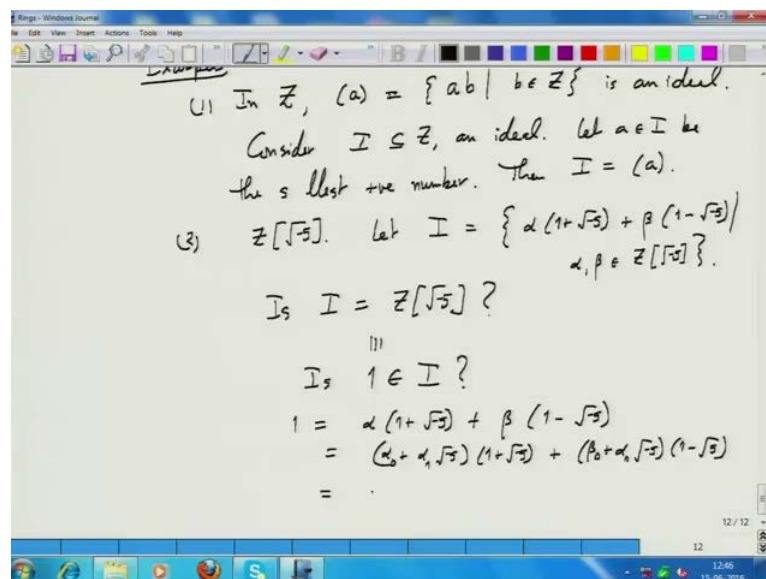 Rings - Windows Journal
Edit View Insert Actions Tools Help
Examples
(1) In Z, (a) = { ab | b ∈ Z } is an ideal.
Consider I ⊆ Z, an ideal. Let a ∈ I be
the s llest +ve number. Then I = (a).
(2) Z[√-5]. Let I = { α (1+√-5) + β (1-√-5) |
α, β ∈ Z[√-5] }.
Is I = Z[√-5] ?
|||
Is 1 ∈ I ?
1 = α (1+√-5) + β (1-√-5)
= (α₀+α₁√-5) (1+√-5) + (β₀+α₁√-5) (1-√-5)
=
12 / 12
12
12:46
15-06-2016